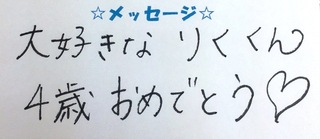 ☆メッセージ☆
大好きな りくくん
4歳 おめでとう♡